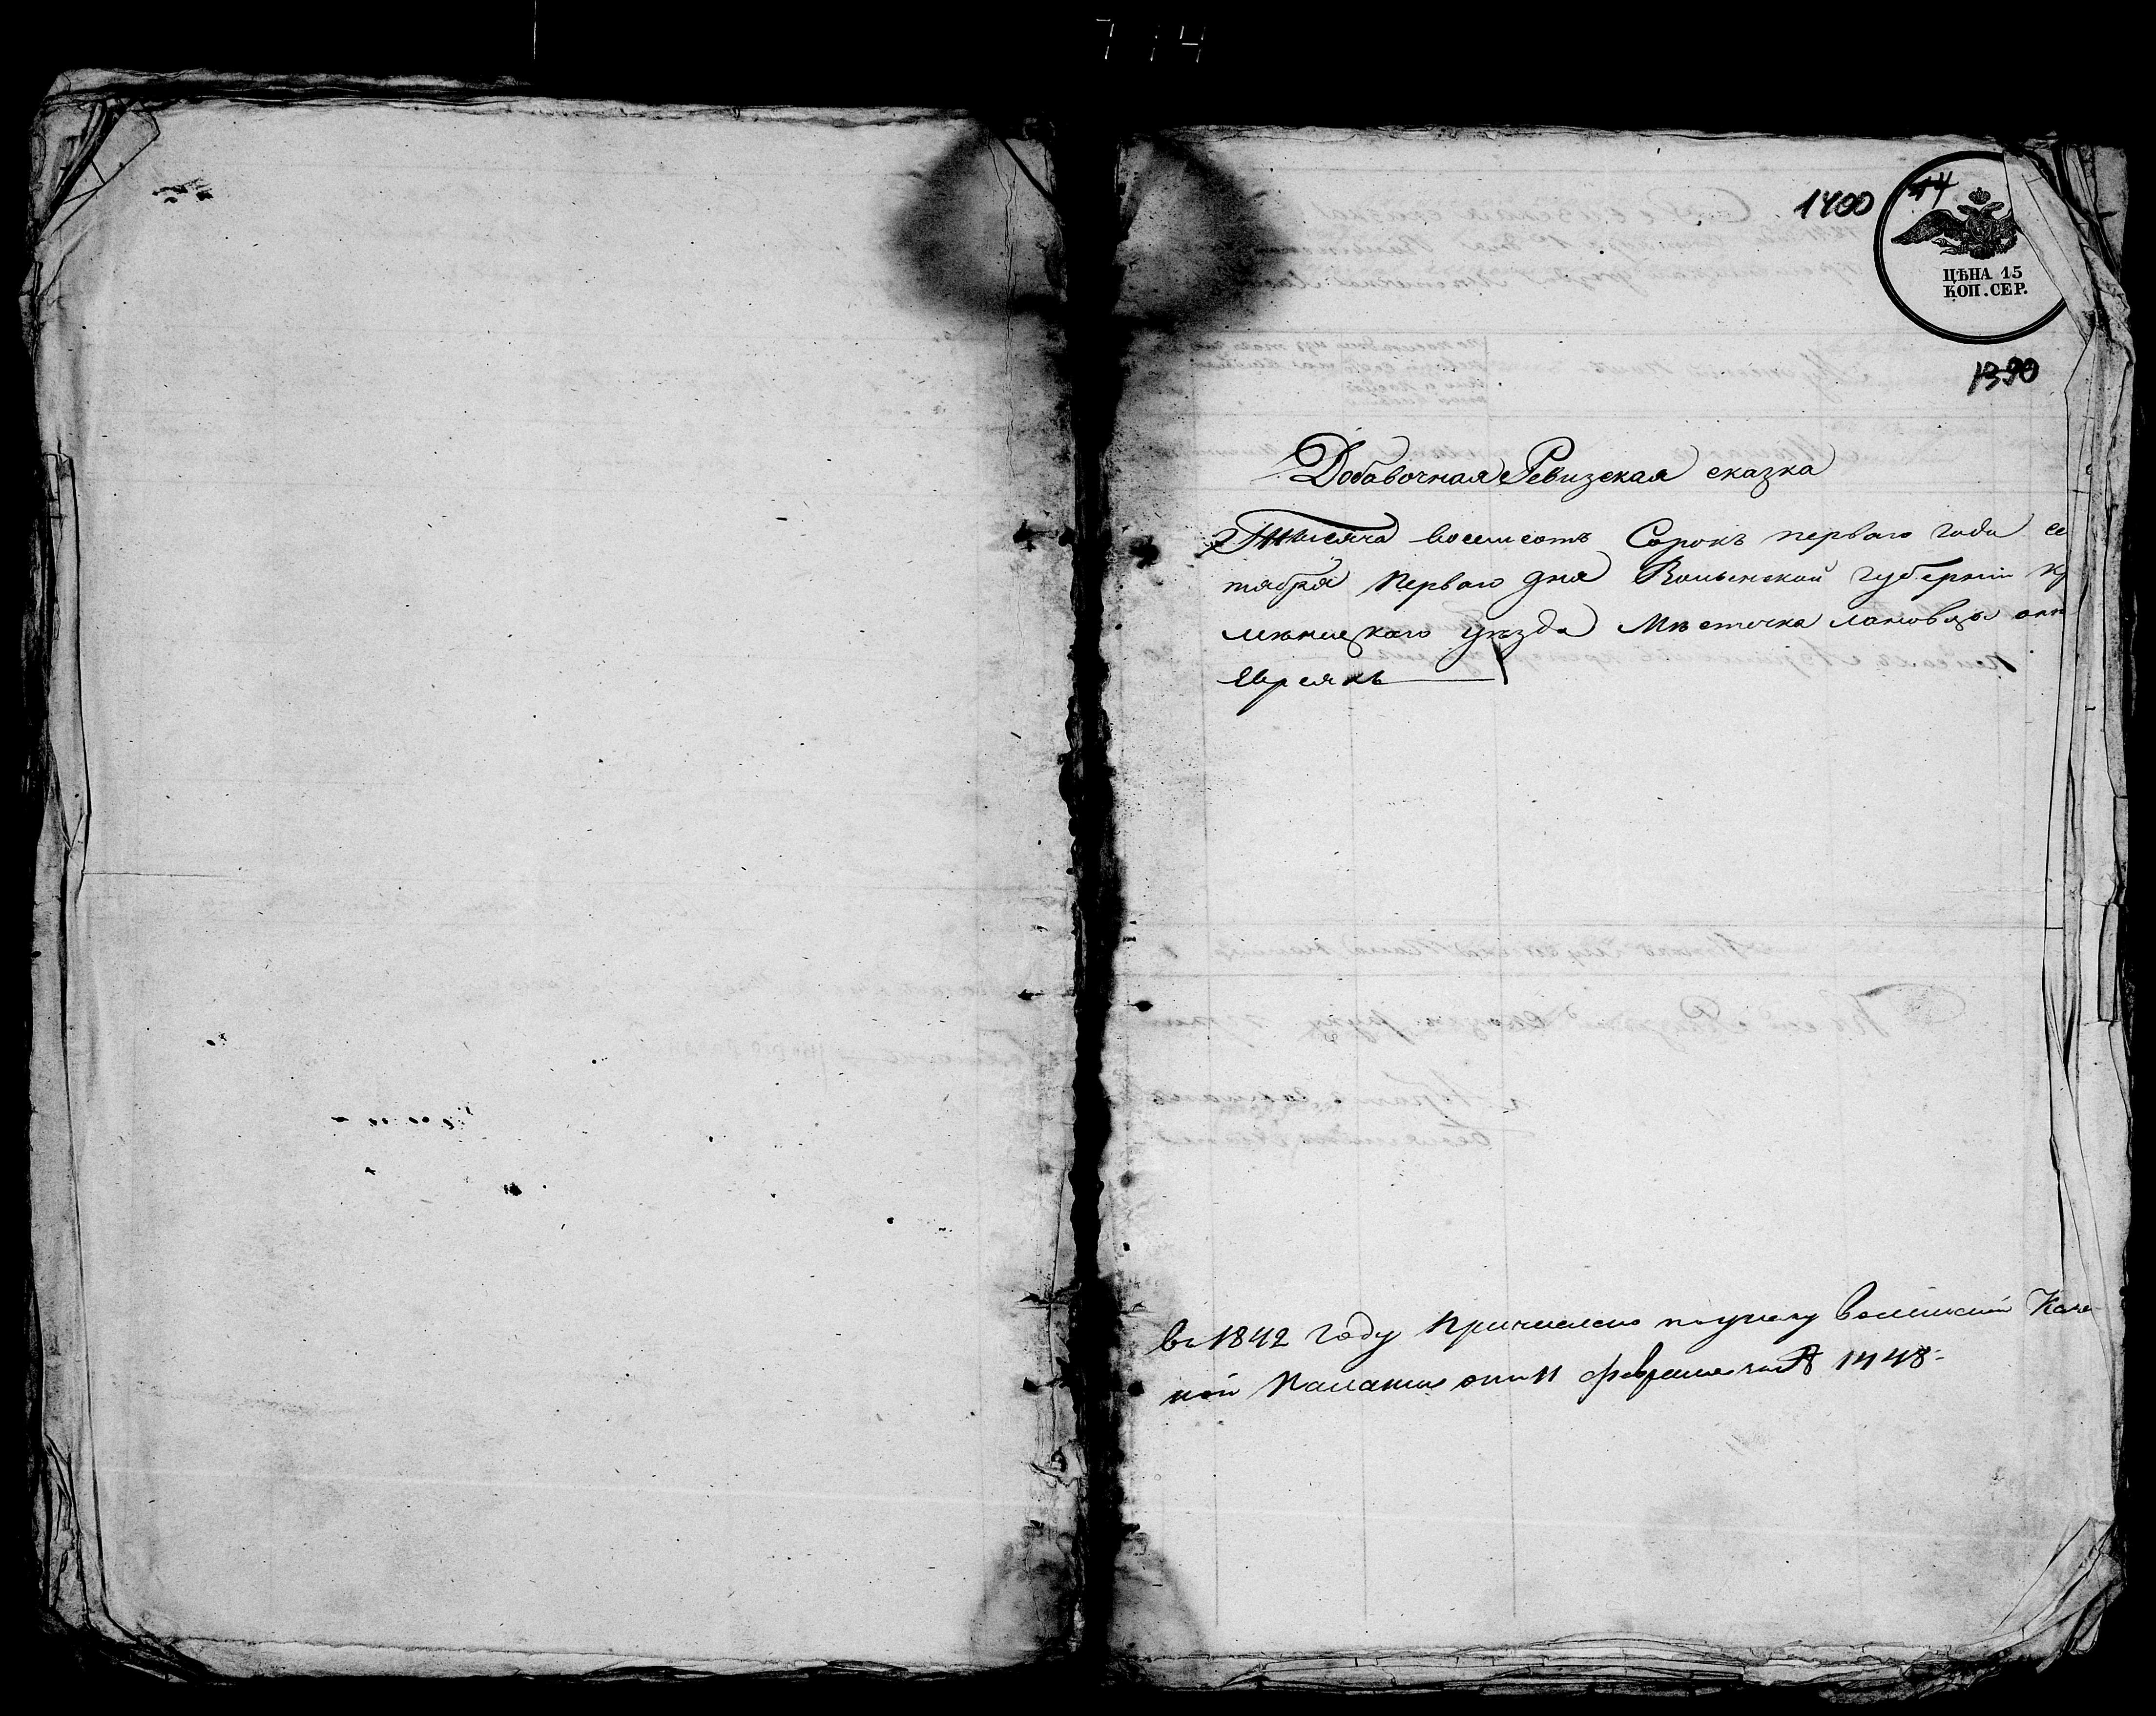 714
1400
44
ЦѢНА 15
КОП. СЕР.
1390
Добавочная Ревизская сказка
Тысяча восемсотъ Сорокъ перваго года се
тября перваго дня Волынской губерніи Кр
менецкаго уѣзда Мѣстечка Лановецъ
Евреяхъ
в 1842 году причислено по указу волынской Казе
ной Палаты отъ 11 февраля за № 1448